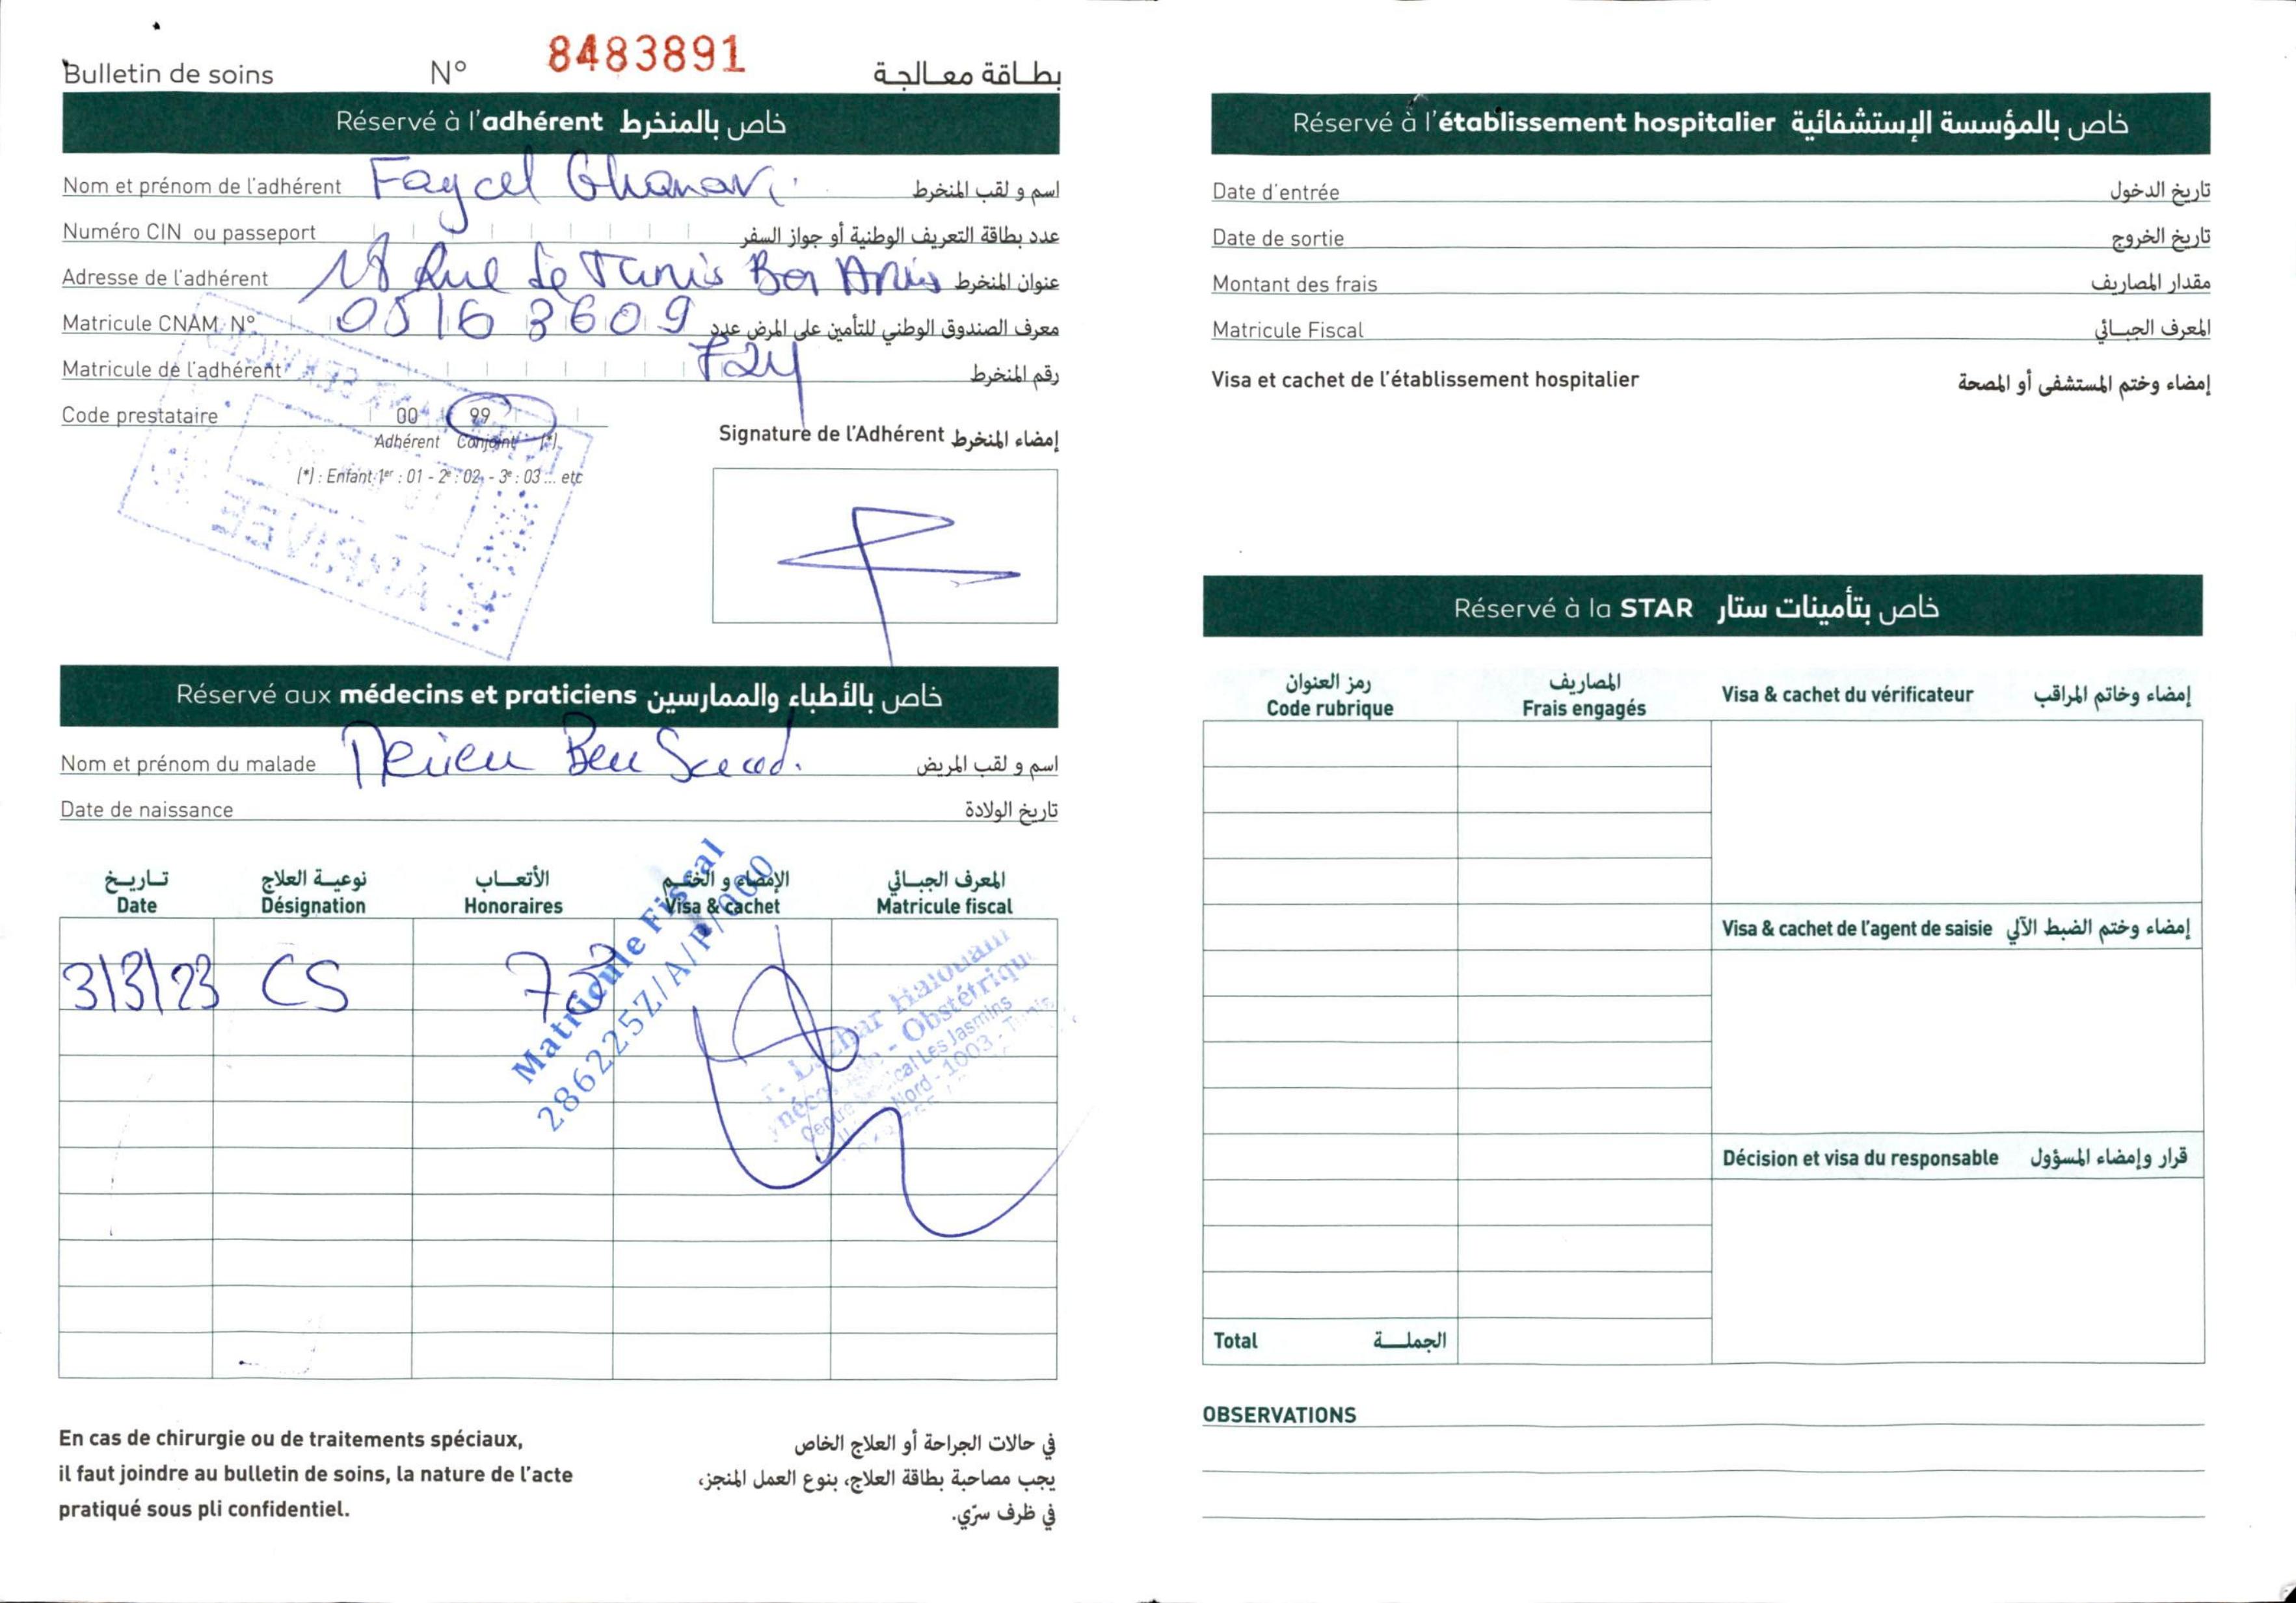 Bulletin de soins N° 8483891 بطاقة معالجة
Réservé à l'adhérent خاص بالمنخرط
Nom et prénom de l'adhérent Faycel Ghanavi اسم و لقب المنخرط
Numéro CIN ou passeport عدد بطاقة التعريف الوطنية أو جواز السفر
Adresse de l'adhérent 18 Rue de Tunis Ben Arus عنوان المنخرط
Matricule CNAM N° 0516 3609 معرف الصندوق الوطني للتأمين على المرض عدد
Matricule de l'adhérent 724 رقم المنخرط
Code prestataire 00 99
Adhérent Conjoint (*)
(*) : Enfant 1er : 01 - 2e : 02 - 3e : 03 ... etc
Signature de l'Adhérent إمضاء المنخرط
ARRIVEE
Réservé aux médecins et praticiens خاص بالأطباء والممارسين
Nom et prénom du malade Ben اسم و لقب المريض
Date de naissance تاريخ الولادة
تاريخ نوعية العلاج الأتعاب الإمضاء و الختم المعرف الجبائي
Date Désignation Honoraires Visa & cachet Matricule fiscal
3/3/23 CS
Matricule Fiscal
286225Z/A/P/000
Halouani
- Obstétrique
Les Jasmins
Nord - 1003 - Tunis
En cas de chirurgie ou de traitements spéciaux,
il faut joindre au bulletin de soins, la nature de l'acte
pratiqué sous pli confidentiel.
في حالات الجراحة أو العلاج الخاص
يجب مصاحبة بطاقة العلاج، بنوع العمل المنجز،
في ظرف سرّي.
Réservé à l'établissement hospitalier خاص بالمؤسسة الإستشفائية
Date d'entrée تاريخ الدخول
Date de sortie تاريخ الخروج
Montant des frais مقدار المصاريف
Matricule Fiscal المعرف الجبائي
Visa et cachet de l'établissement hospitalier إمضاء وختم المستشفى أو المصحة
Réservé à la STAR خاص بتأمينات ستار
رمز العنوان المصاريف
Code rubrique Frais engagés Visa & cachet du vérificateur إمضاء وخاتم المراقب
Visa & cachet de l'agent de saisie إمضاء وختم الضبط الآلي
Décision et visa du responsable قرار وإمضاء المسؤول
Total الجملة
OBSERVATIONS